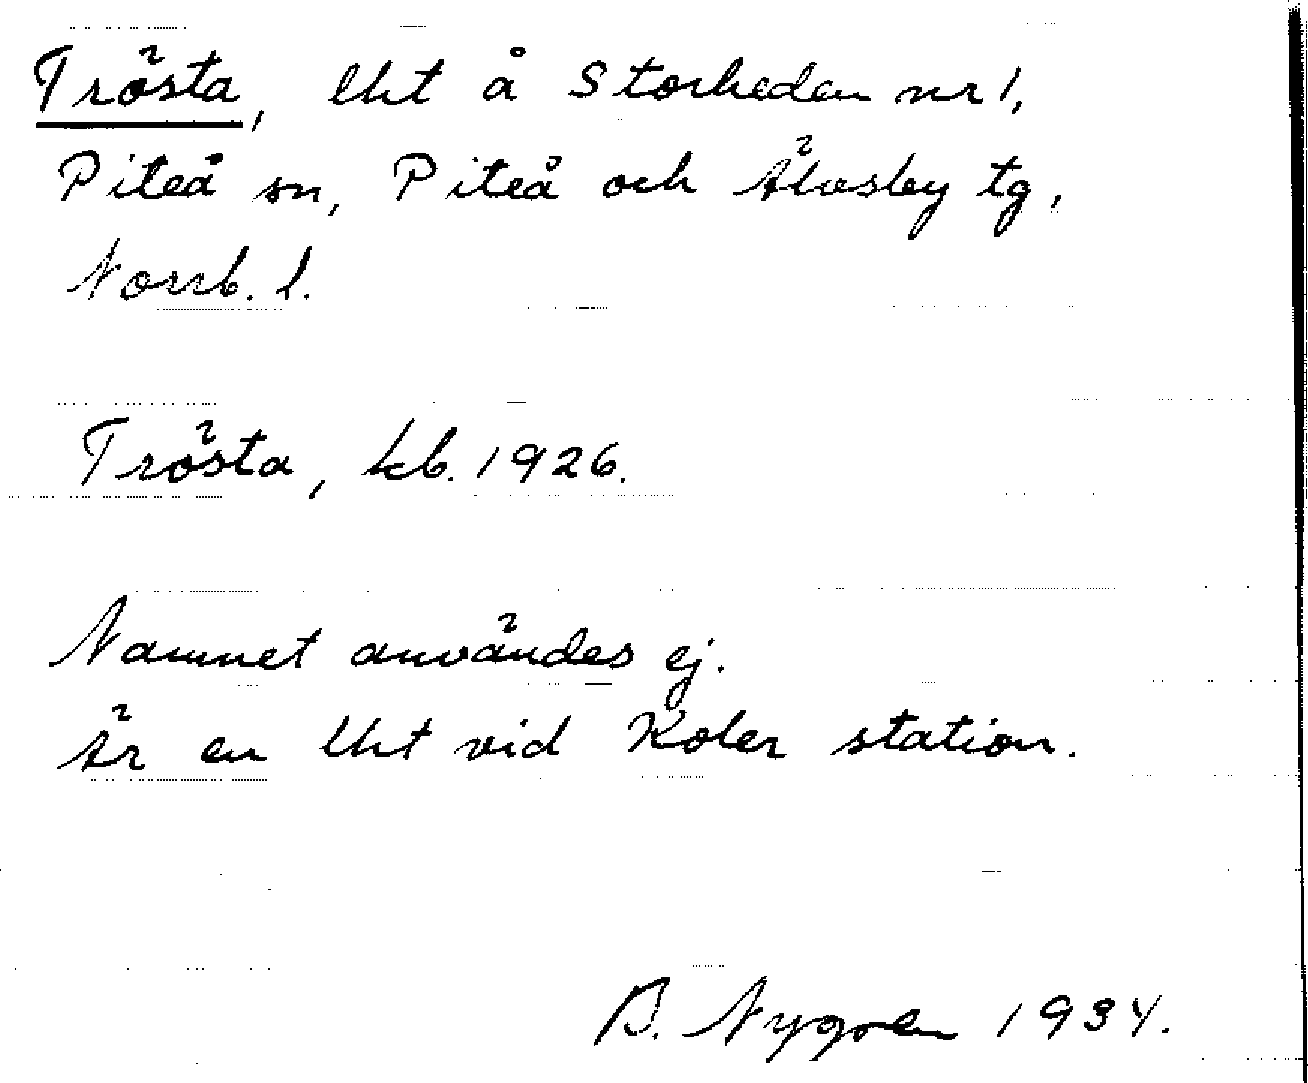 Trösta, lht å Storheden nr 1,
Piteå sn, Piteå och Älvsby tg,
Norrb. l.
Trösta, kb. 1926.
Namnet användes ej.
Är en lht vid Koler station.
B. Nygren 1934.